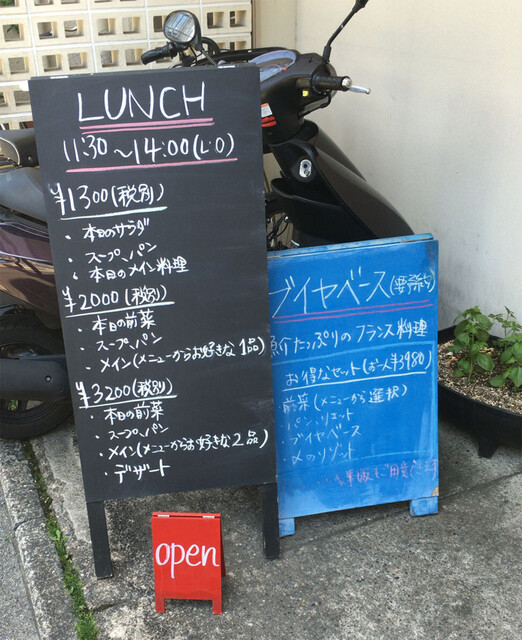 LUNCH
11:30～14:00(L.O)
¥1300(税別)
・本日のサラダ
・スープ、パン
・本日のメイン料理
¥2000(税別)
・本日の前菜
・スープ、パン
・メイン(メニューからお好きな1品)
¥3200(税別)
・本日の前菜
・スープ、パン
・メイン(メニューからお好きな2品)
・デザート
open
ブイヤベース(要予約)
魚介たっぷりのフランス料理
お得なセット(お一人¥3980)
・前菜(メニューから選択)
・パン、リエット
・ブイヤベース
・〆のリゾット